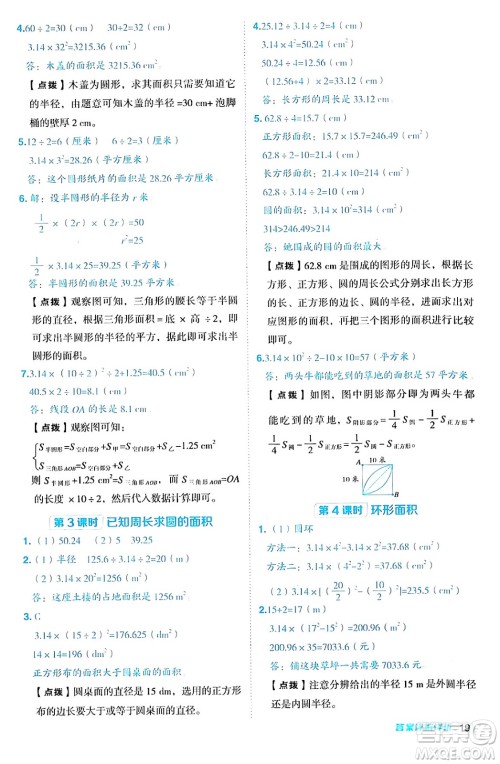 4.60÷2=30  30²-2²=32(cm)
3.14×32²=3215.36(cm²)
答：木盖的面积是3215.36 cm².
【点拨】木盖为圆形，求其面积只需要知道它
的半径，由题意可知木盖的半径=30 cm+泡脚
桶的壁厚2 cm。
5.12÷2=6(厘米)  6÷2=3(厘米)
3.14×3²=28.26(平方厘米)
答：这个圆形纸片的面积是28.26平方厘米.
6.解：设半圆形的半径为r米
1/2×(2r)×(2r)=50
r²=25
1/2×3.14×25=39.25(平方米)
答：半圆形的面积是39.25平方米.
【点拨】观察图可知，三角形的腰长等于半圆
形的直径，根据三角形的面积=底×高÷2，可
以求出半圆形的半径的平方，据此可求出半
圆形的面积。
7.3.14×(10÷2)²÷2=39.25(cm²)
39.25+1.25=40.5(cm²)
40.5×2÷10=8.1(cm)
答：线段OA的长是8.1 cm.
【点拨】观察图可知，
S半圆形=S空白部分+S甲
S三角形AOB=S空白部分+S乙
S半圆形+1.25 cm²=S三角形AOB
则OA的
长度×10÷2，据此可求出OA的长度。
第3课时 已知周长求圆的面积
1.(1)50.24 (2)5 39.25
2.(1)半径 125.6÷3.14÷2=20(m)
(2)3.14×20²=1256(m²)
答：这座土楼的占地面积是1256 m².
3.C
3.14×(15÷2)²=176.625(dm²)
3.14×15²÷4=176.625(dm²)
正方形布的面积大于圆桌面的面积
【点拨】圆桌面的直径是15 dm,选用的正方形
布的边长应大于圆桌面的直径。
4.25.12÷3.14÷2=4(cm)
3.14×4²=50.24(cm²)
(12.56+4)×2=33.12(cm)
答：长方形的周长是33.12 cm.
5.62.8÷4=15.7(cm)
正方形面积：15.7×15.7=246.49(cm²)
长方形面积：21.4×10=214(cm²)
62.8÷3.14÷2=10(cm)
圆的面积：3.14×10²=314(cm²)
314>246.49>214
答：她围成的圆形面积最大.
【点拨】62.8 cm是围成的图形的周长，根据
长方形、正方形、圆的周长公式分别求出长方
形的长、正方形的边长、圆的半径，再求出对
应图形的面积进行比较即可。
6.3.14×10²÷2-10×10=57(平方米)
答：两头牛都能吃到的草地的面积是57平方米.
【点拨】观察图可知，图中阴影部分为两头牛都
能吃到的草地，S阴影部分=1/4 S圆-(S正方形-
1/4 S圆)=1/4 S圆+1/4 S圆-S正方形。
A 10米
10米
B
第4课时 环形面积
1.(1)圆环
方法一：3.14×4²-3.14×2²=37.68(cm²)
方法二：3.14×(4²-2²)=37.68(cm²)
(2)3.14×[(20/2)²-(10/2)²]=235.5(cm²)
2.15+2=17(m)
3.14×(17²-15²)=200.96(m²)
200.96×35=7033.6(元)
答：铺这块草坪一共需要7033.6元.
【点拨】注意分辨给出的数据是内、外圆半径
还是内、外圆直径。
19